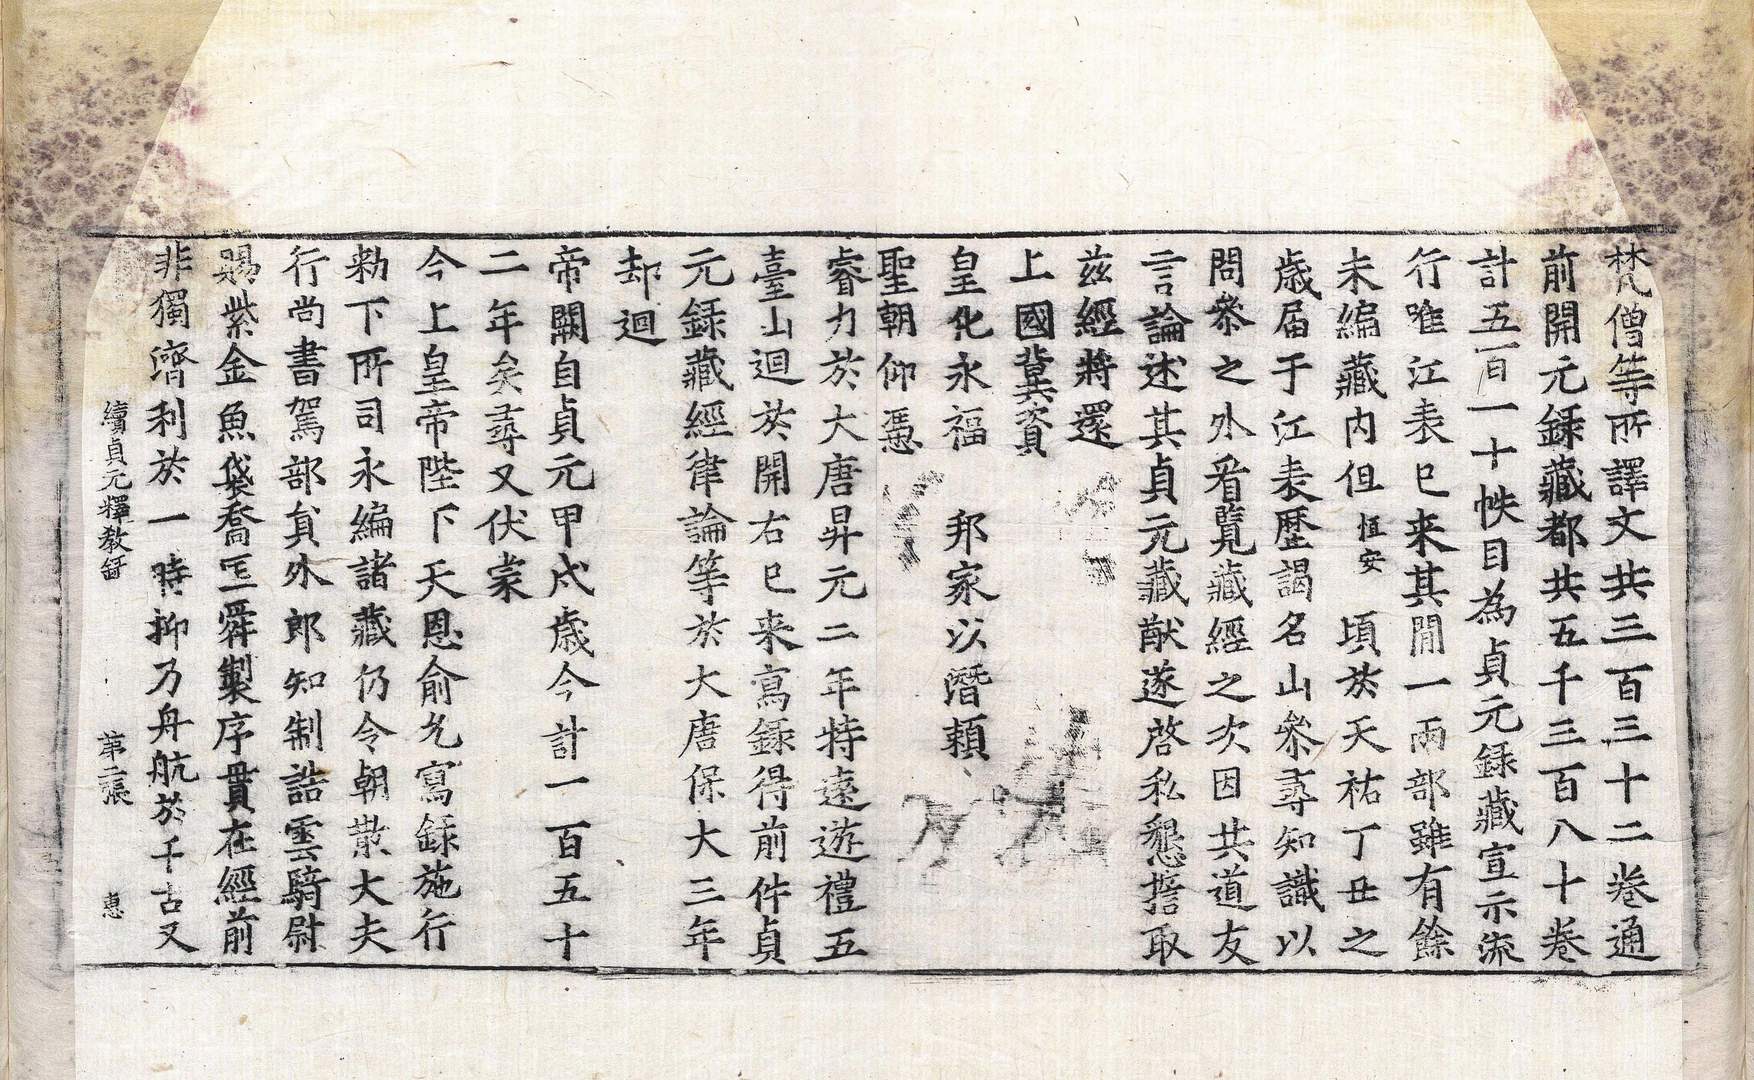 梵僧等所譯文共三百三十二卷通
前開元錄藏都共五千三百八十卷
計五百一十帙目為貞元錄藏宣示流
行唯江表已来其間一兩部雖有餘
未編藏內但恒安頃於天祐丁丑之
歲届于江表歷謁名山叅尋知識以
問叅之外看覽藏經之次因共道友
言論述其貞元藏猷遂啓私懇擔取
茲經將還
上國冀資
皇化永福　邦家以潛賴
聖朝仰憑
睿力於大唐昇元二年特遠遊禮五
臺山迴於開右已来寫錄得前件貞
元錄藏經律論等於大唐保大三年
却迴
帝闕自貞元甲戍歲今計一百五十
二年矣尋又伏蒙
今上皇帝陛下天恩俞允寫錄施行
勑下所司永編諸藏仍令朝散大夫
行尚書駕部貟外郎知制誥雲騎尉
賜紫金魚袋喬匡舜製序貫在經前
非獨濟利於一時抑乃舟航於千古又
續貞元釋教錄　第二張　惠